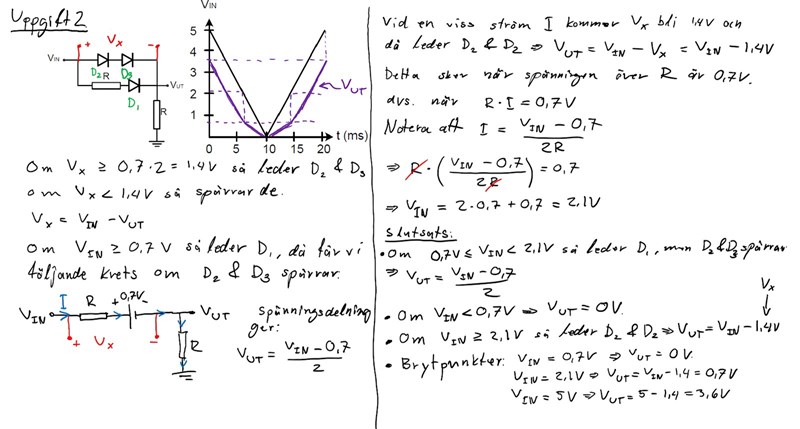 Uppgift 2
+ Vx -
VIN
D2 D3
R
D1
VUT
R
VIN
5
4
3
2
1
VUT
0 5 10 15 20
t (ms)
Om Vx ≥ 0,7·2 = 1,4V så leder D2 & D3
om Vx < 1,4V så spärrar de.
Vx = VIN - VUT
Om VIN ≥ 0,7 V så leder D1, då får vi
följande krets om D2 & D3 spärrar:
I R +0,7V-
VIN VUT
+ Vx -
R
spänningsdelning
ger:
VUT = (VIN - 0,7)/2
Vid en viss ström I kommer Vx bli 1,4V och
då leder D2 & D2 ⇒ VUT = VIN - Vx = VIN - 1,4V
Detta sker när spänningen över R är 0,7V.
dvs. när R·I = 0,7V
Notera att I = (VIN - 0,7)/2R
⇒ R·((VIN - 0,7)/2R) = 0,7
⇒ VIN = 2·0,7 + 0,7 = 2,1V
Slutsats:
• Om 0,7V ≤ VIN < 2,1V så leder D1, men D2 & D3 spärrar
⇒ VUT = (VIN - 0,7)/2
Vx
• Om VIN < 0,7V ⇒ VUT = 0V.
• Om VIN ≥ 2,1V så leder D2 & D2 ⇒ VUT = VIN - 1,4V
• Brytpunkter: VIN = 0,7V ⇒ VUT = 0V.
VIN = 2,1V ⇒ VUT = VIN - 1,4 = 0,7V
VIN = 5V ⇒ VUT = 5 - 1,4 = 3,6V